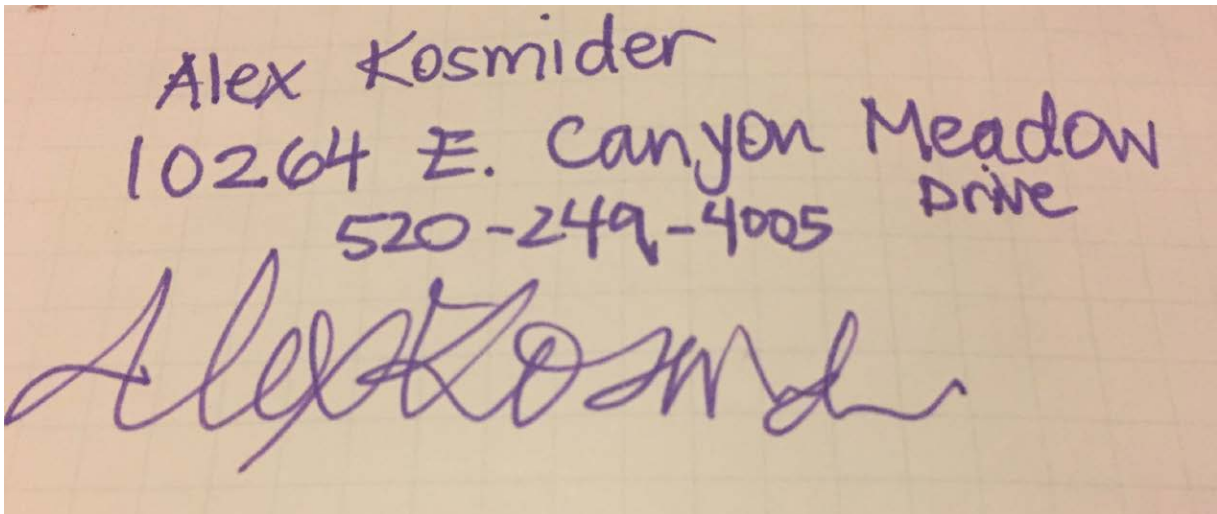 Alex Kosmider
10264 E. Canyon Meadow
Drive
520-249-4005
Alex Kosmider